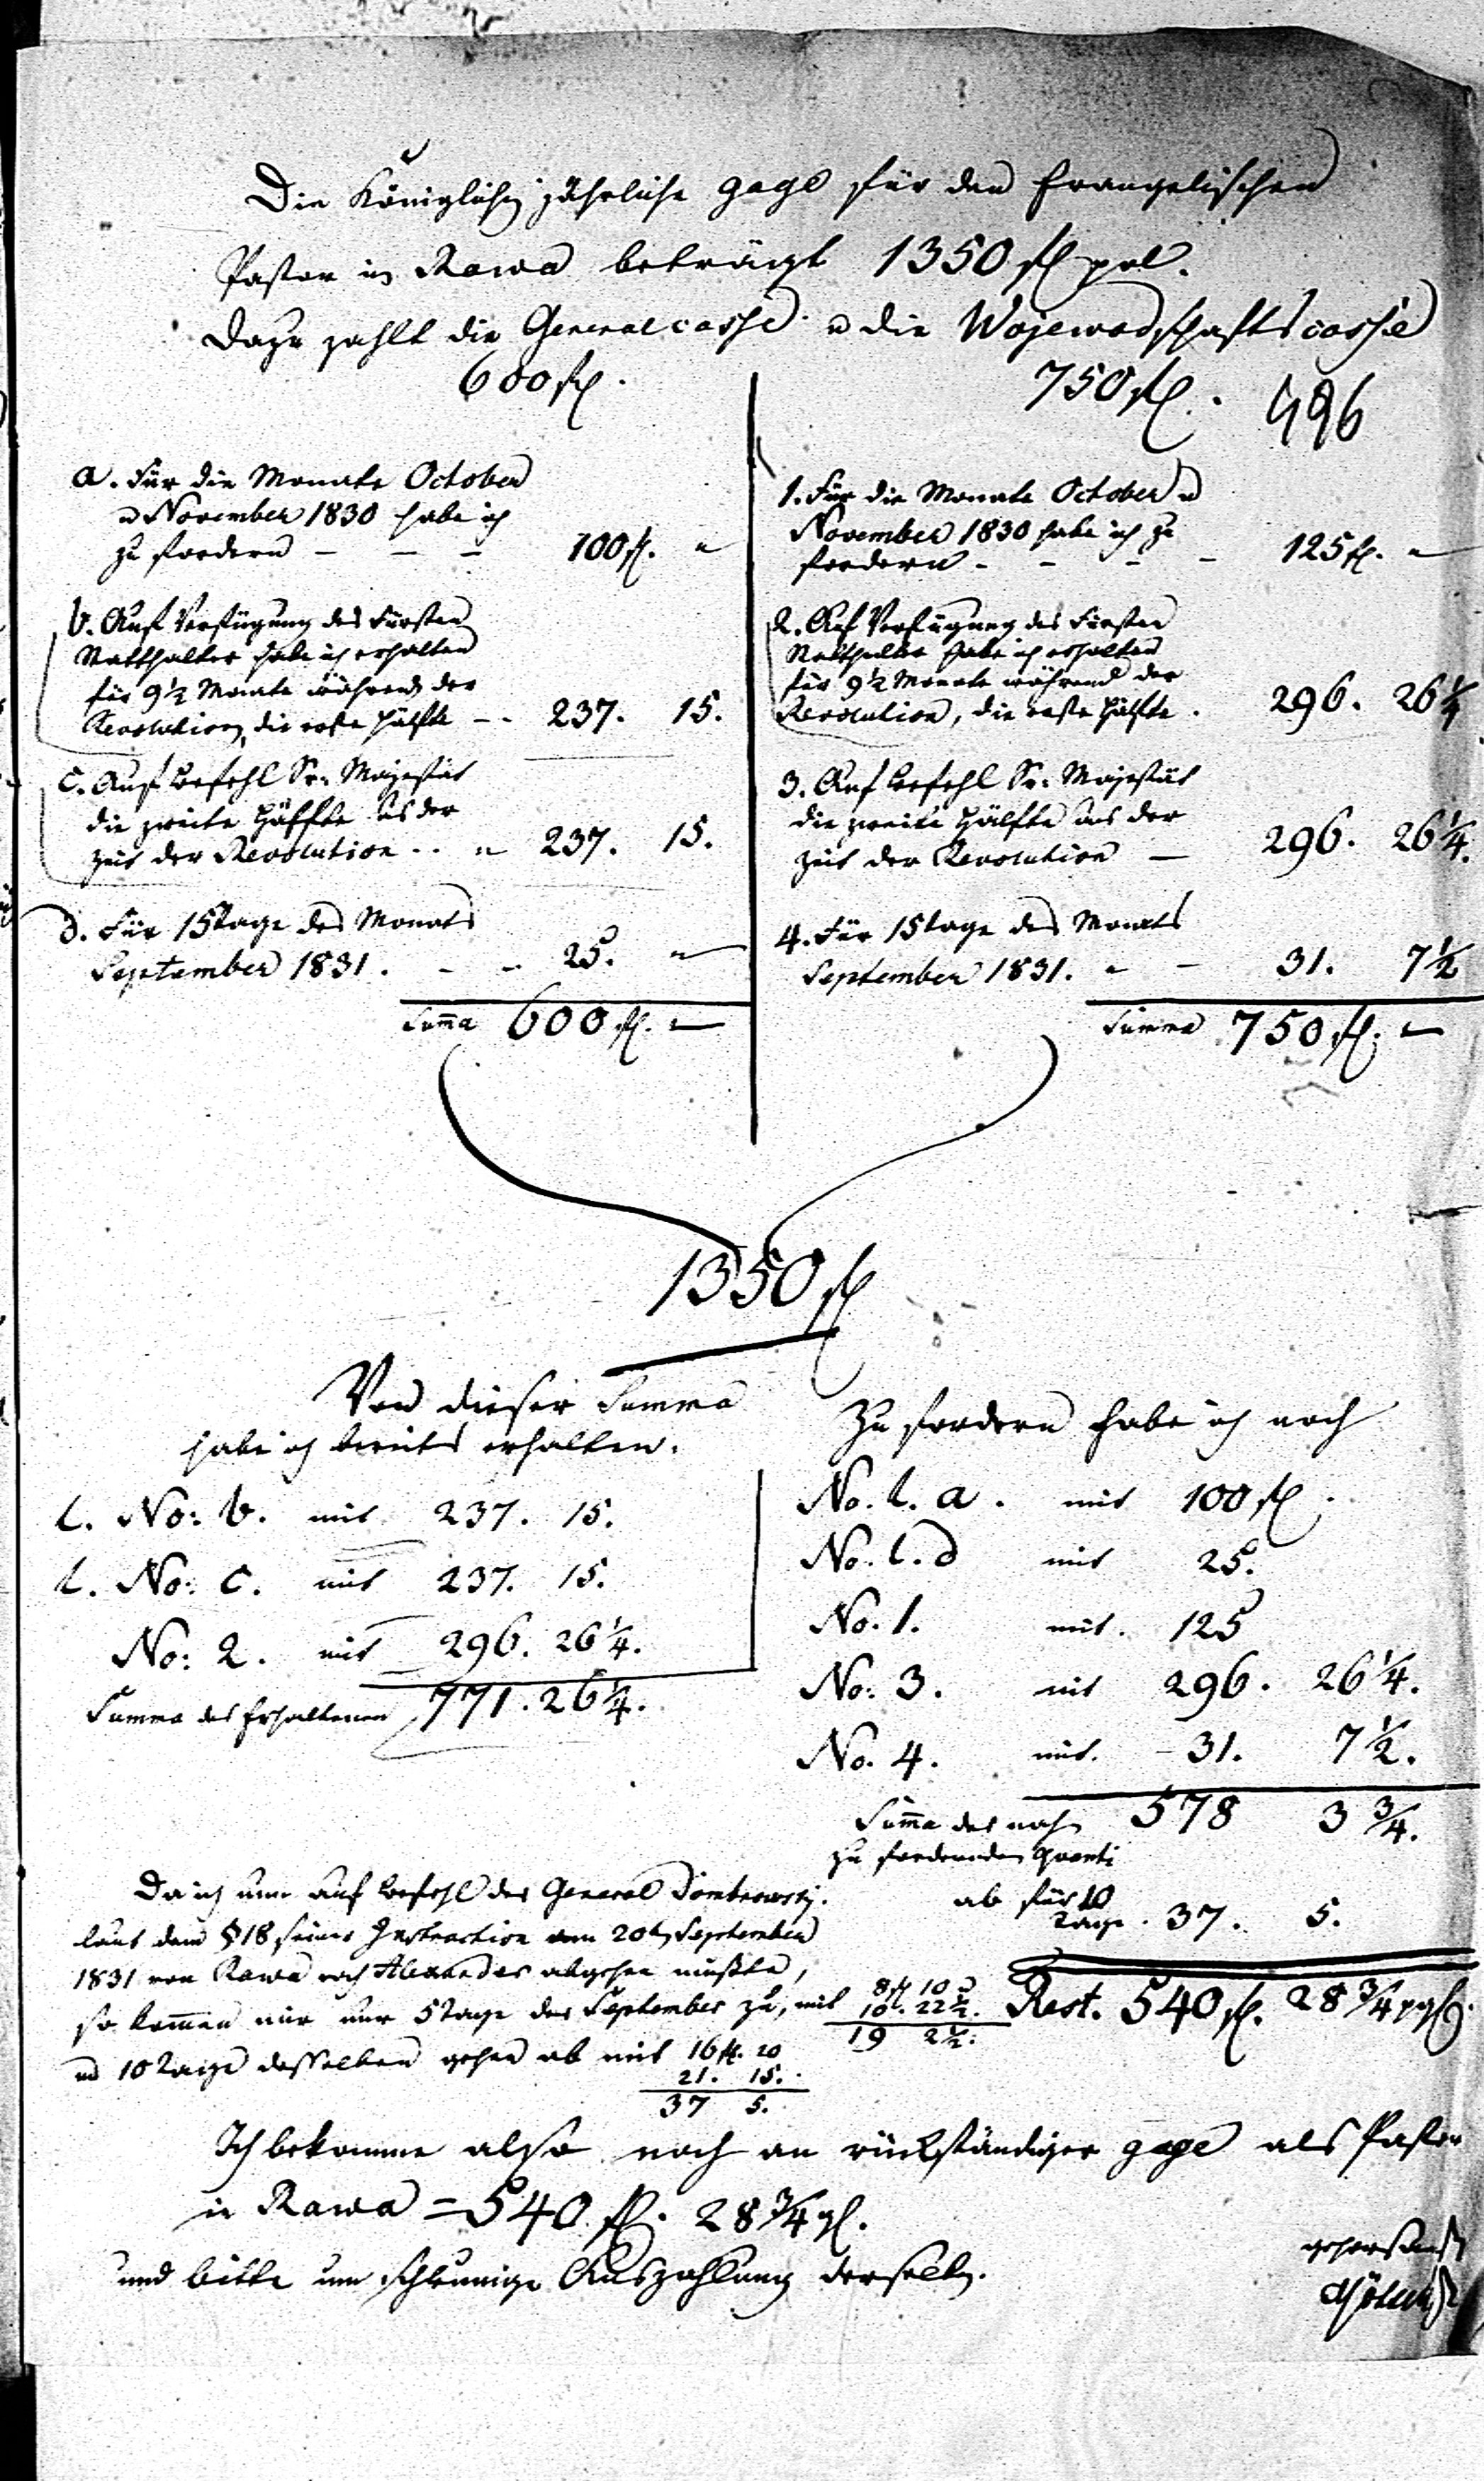 Die Königliche jährliche Gage für den Evangelischen
Pastor in Rawa beträgt 1350 fl pol.
Dazu zahlt die Generalcasse u die Wojewodschafts casse
600 fl. 750 fl.
496
a. Für die Monate October
u November 1830 habe ich
zu fordern - - - 100 fl. "
b. Auf Verfügung des Fürsten
Statthalter habe ich erhalten
für 9 1/2 Monate während der
Revolution, die erste Hälfte - . 237. 15.
c. Auf Befehl Sr. Majestät
die zweite Hälfte aus der
Zeit der Revolution . . " 237. 15.
d. Für 15 Tage des Monats
September 1831. - - 25. "
Summa 600 fl. "
1. Für die Monate October u
November 1830 habe ich zu
fordern - - - - 125 fl. "
2. Auf Verfügung des Fürsten
Statthalter habe ich erhalten
für 9 1/2 Monate während der
Revolution, die erste Hälfte . 296. 26 1/4
3. Auf Befehl Sr. Majestät
die zweite Hälfte aus der
Zeit der Revolution - 296. 26 1/4.
4. Für 15 Tage des Monats
September 1831. " - 31. 7 1/2
Summa 750 fl. "
1350 fl
Von dieser Summa
habe ich bereits erhalten.
L. No: b. mit 237. 15.
L. No: c. mit 237. 15.
No: 2. mit 296. 26 1/4.
Summa des Erhaltenen 771. 26 1/4.
Zu fordern habe ich noch
No. L. a. mit 100 fl.
No. L. d mit 25.
No. 1. mit. 125
No: 3. mit 296. 26 1/4.
No. 4. mit. - 31. 7 1/2.
Summa des noch 578 3 3/4.
zu fordernden Quanti
ab für 10
Tage. 37. 5.
Rest. 540 fl. 28 3/4 pgl.
Da ich nun auf Befehl des General Dombrowsky.
laut dem § 18 seiner Instruction am 20t September
1831 von Rawa nach Alexander abgehen mußte,
so kommen mir nur 5 Tage des September zu, mit 8 fl 10
10. 22 1/2.
19 2 1/2.
und 10 Tage desselben gehen ab mit 16 fl. 20
21. 15.
37 5.
Ich bekomme also noch an rückständiger Gage als Pastor
in Rawa = 540 fl. 28 3/4 gl.
und bitte um schleunige Auszahlung derselben.
gehorsamst